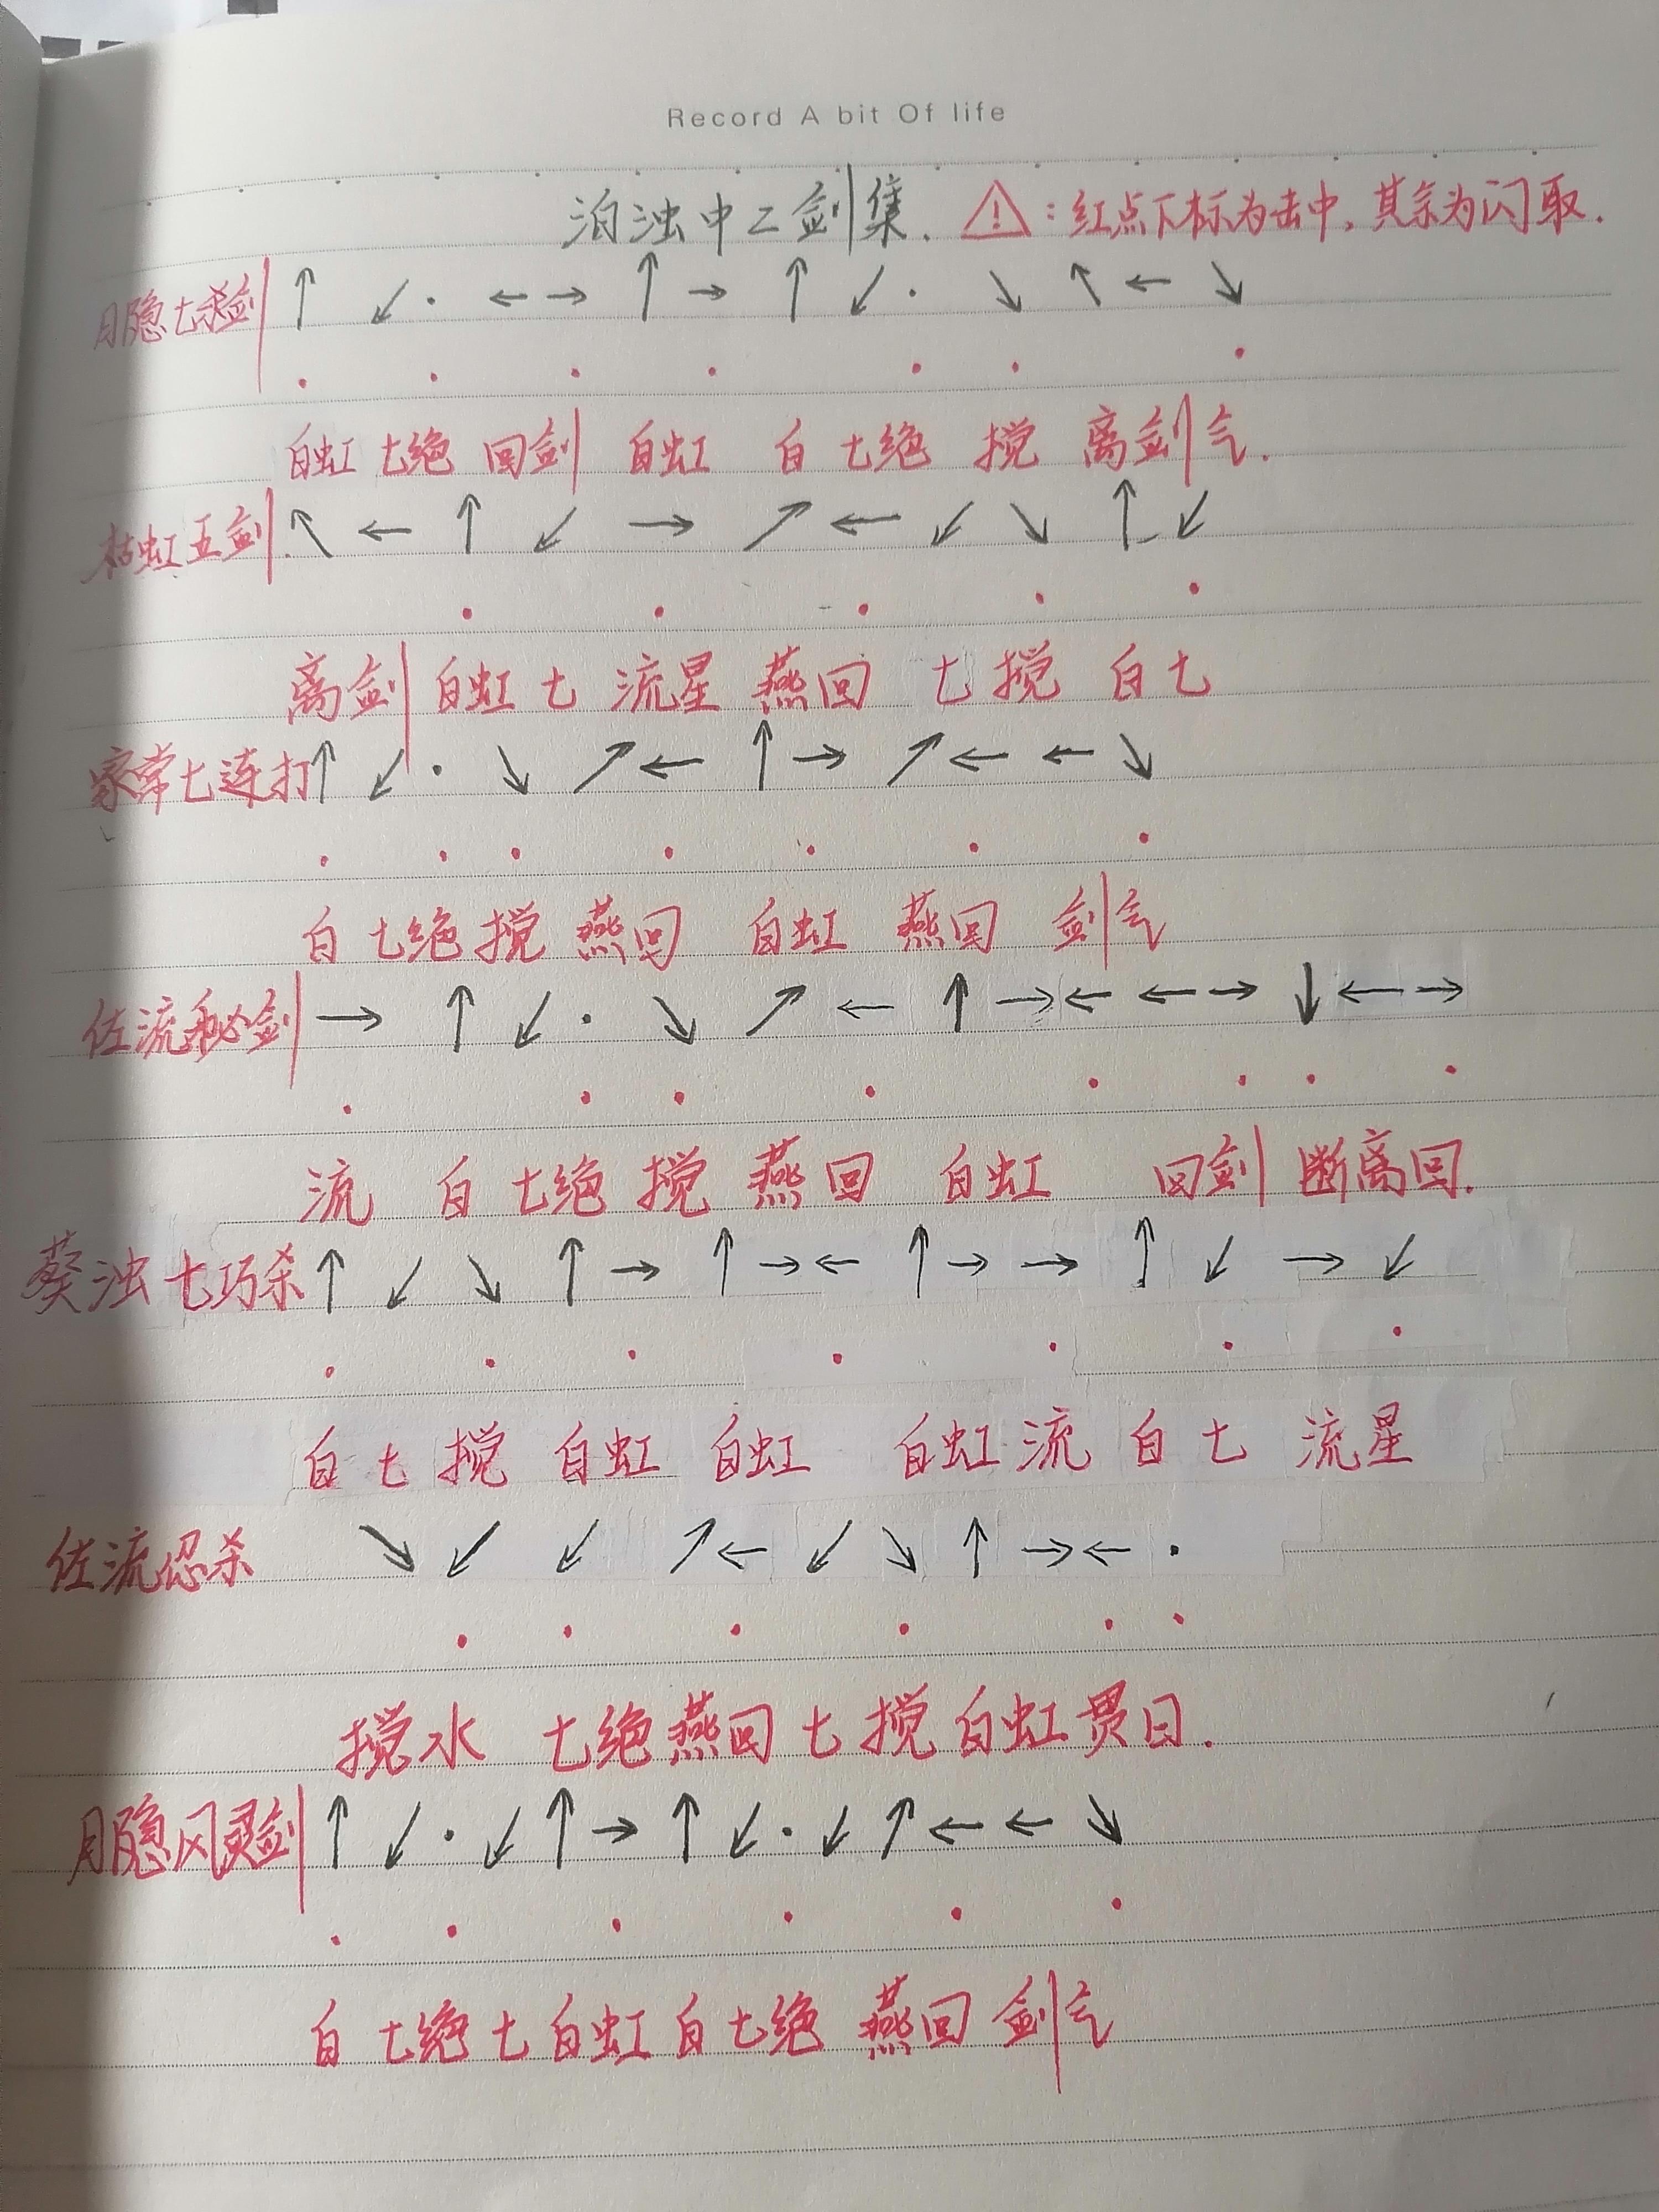 Record A bit Of life
泊浊中二剑集. ⚠:红点下标为击中,其余为闪取.
月隐七杀剑 ↑ ↙ · ← → ↑ → ↑ ↙ · ↘ ↖ ← ↘
白虹 七绝 回剑 白虹 白 七绝 搅 离剑气.
枯虹五剑. ↖ ← ↑ ↙ → ↗ ← ↙ ↘ ↑ ↙
离剑 白虹 七 流星 燕回 七 搅 白七
家常七连打 ↑ ↙ · ↘ ↗ ← ↑ → ↗ ← ← ↘
白 七绝 搅 燕回 白虹 燕回 剑气
佐流秘剑 → ↑ ↙ · ↘ ↗ ← ↑ → ← ← → ↓ ← →
流 白 七绝 搅 燕回 白虹 回剑 断离回.
葵浊七巧杀 ↑ ↙ ↘ ↑ → ↑ → ← ↑ → → ↑ ↙ → ↙
白七搅 白虹 白虹 白虹流 白七 流星
佐流忍杀 ↘ ↙ ↙ ↗ ← ↙ ↘ ↑ → ← ·
搅水 七绝燕回七搅白虹贯日.
月隐风灵剑 ↑ ↙ · ↙ ↑ → ↑ ↙ · ↙ ↗ ← ← ↘
白七绝七白虹白七绝 燕回 剑气